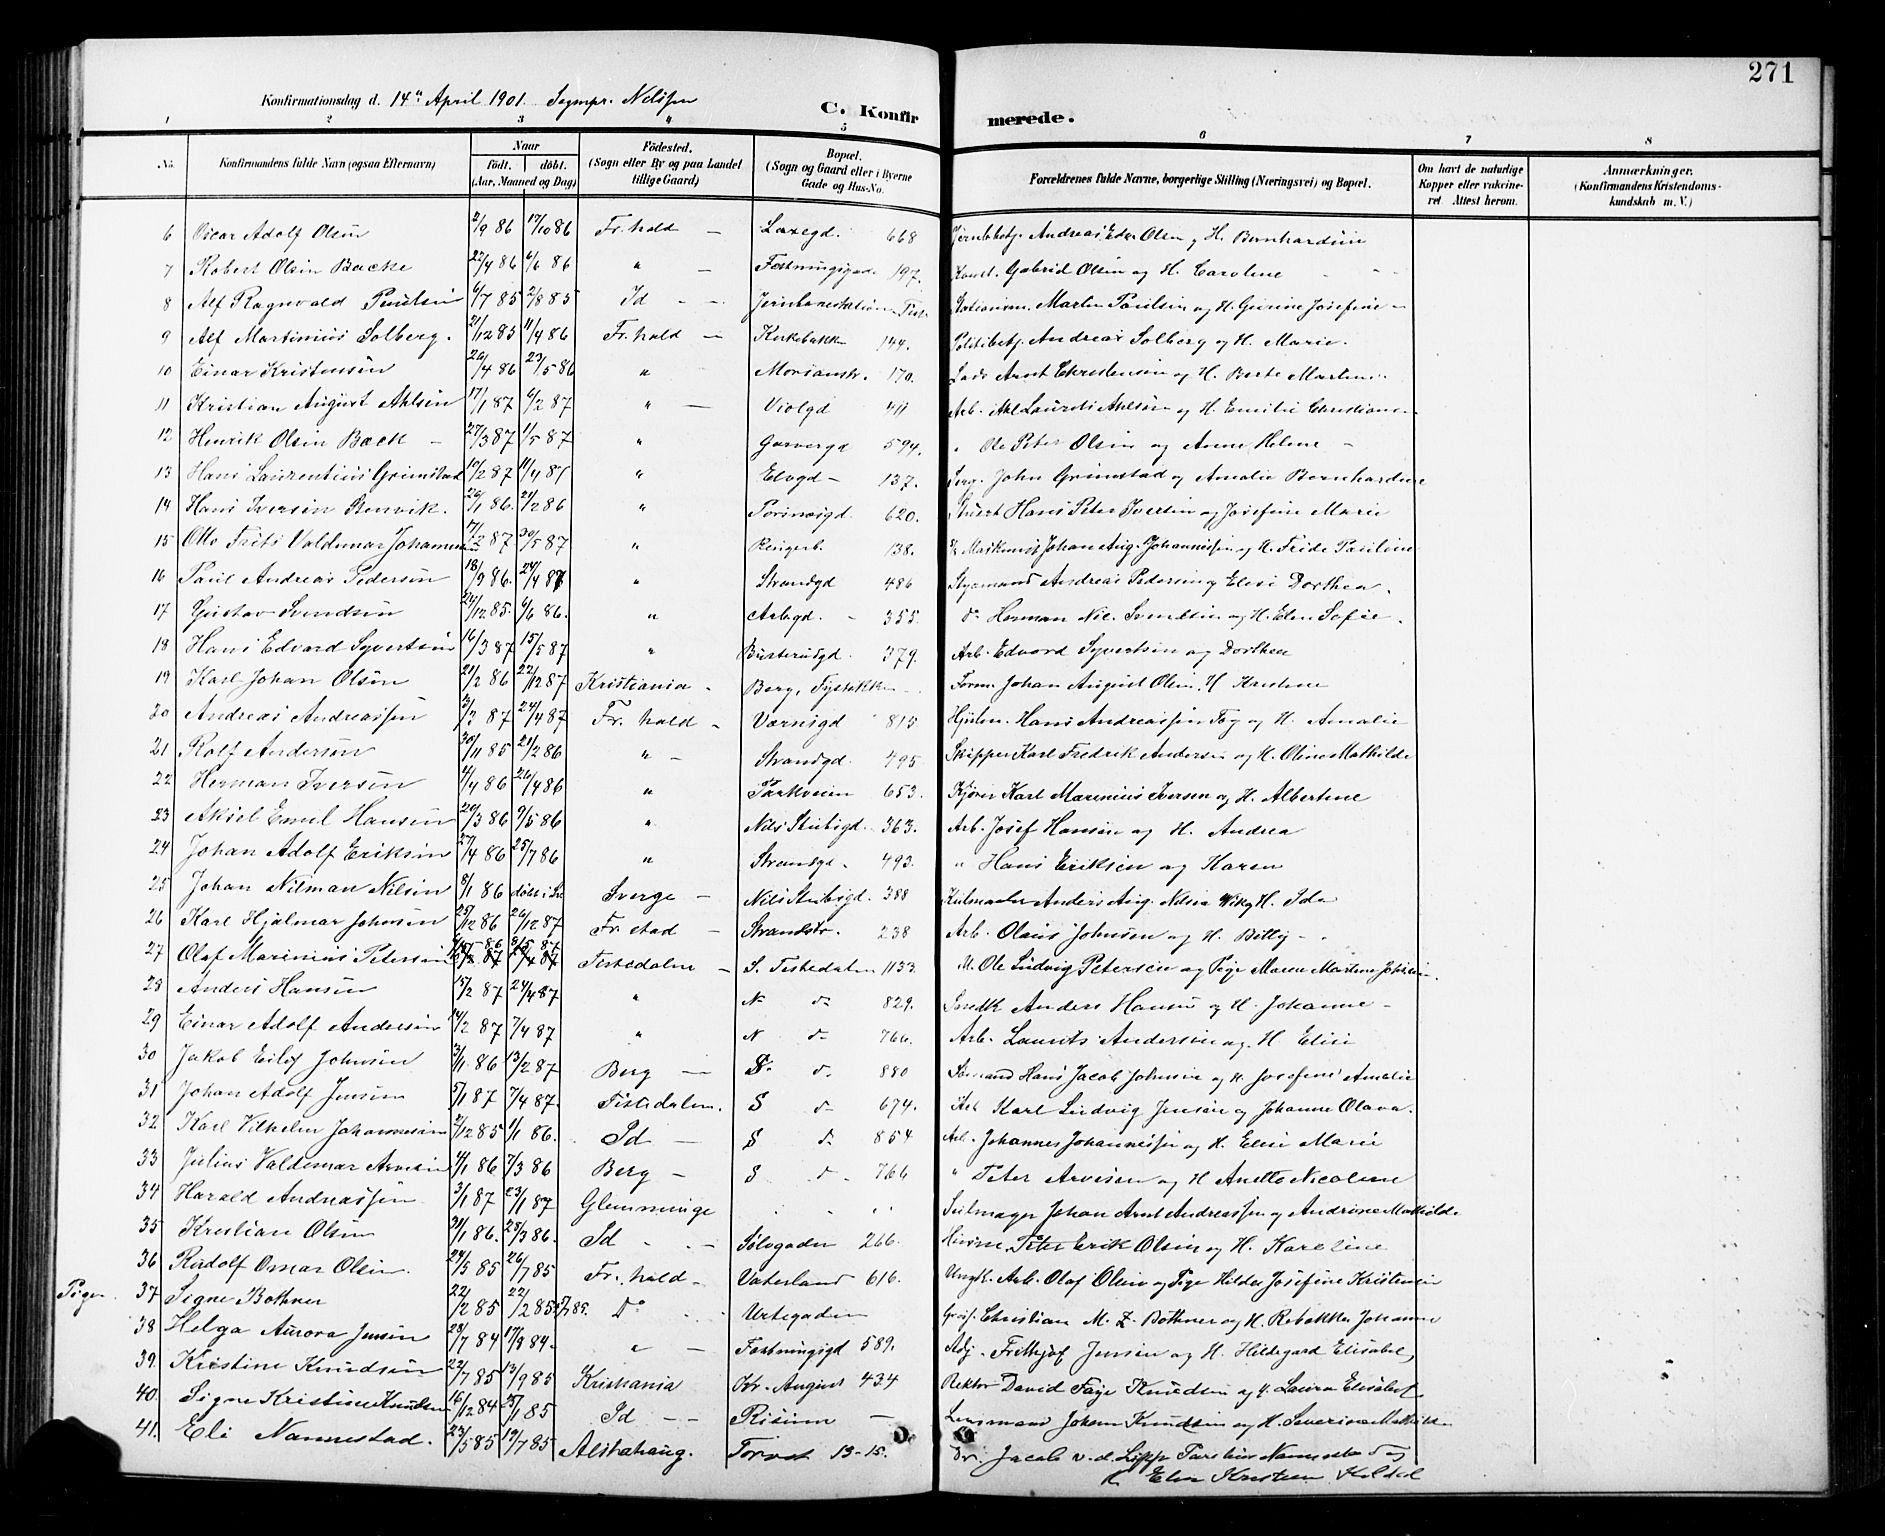 271
Konfirmationsdag d. 14de April 1901. Sognepr. Nilssen
C. Konfirmerede.
1 2 3 4 5 6 7 8
No. Konfirmandens fulde Navn (ogsaa Efternavn) Naar født. døbt. (Aar, Maaned og Dag) Fødested. (Sogn eller By og paa Landet tillige Gaard) Bopæl. (Sogn og Gaard eller i Byerne Gade og Hus-No. Forældrenes fulde Navne, borgerlige Stilling (Næringsvei) og Bopæl. Om havt de naturlige Kopper eller vakcineret. Attest herom. Anmærkninger. (Konfirmandens Kristendomskundskab m. V.)
6 Oscar Adolf Olsen 2/9 86 17/10 86 Fr.hald — 668 Andreas Edv. Olsen og H. Bernhardine
7 Robert Olsen Backe 22/4 86 6/6 86 " — Fæstningsgad. 197. Gabriel Olsen og H. Caroline
8 Alf Ragnvald Paulsen 6/7 85 2/8 85 Id — Jernbanestationen Martin Paulsen og H. Gunine Josefine
9 Alf Martinius Solberg. 21/12 85 11/4 86 Fr.hald — Kirkebakken 144. Politibetj. Andreas Solberg og H. Marie.
10 Einar Kristensen 20/4 86 23/5 86 " Morianstr. 170. Lods Arnt Christensen og H. Berte Martine
11 Kristian August Ahlsen 17/1 87 6/2 87 " — Violgd 411 Arb. Laurits Ahlsen og H. Emilie Christiane
12 Henrik Olsen Back — 27/3 87 1/5 87 " Garvergd 594. " Ole Peter Olsen og Anne Helene —
13 Hans Laurentius Grimstad 10/2 87 11/4 87 " Elvgd — 137. Serg. John Grimstad og Amalie Bernhardine
14 Hans Iversen Stenvik. 26/1 86. 21/2 86 " Torsnesgd. 620. Hans Peter Iversen og Josefine Marie
15 Otto Frits Valdemar Johannessen 17/2 87 30/5 87 " 138. Maskinist Johan Aug. Johannessen og H. Fride Pauline
16 Paul Andreas Pedersen 18/9 86. 24/4 87 " Strandgd 486 Styrmand Andreas Pedersen og Elise Dorthea.
17 Gustav Svendsen 24/12 85 6/6 86. " Arbgd. — 355. do Herman Nic. Svendsen og H. Elen Sofie.
18 Hans Edvard Syvertsen 16/3 87 15/5 87 " Busterudgd. 379. Arb. Edvard Syvertsen og Dorthea
19 Karl Johan Olsen 21/2 86 22/12 87 Kristiania. Berg, Johan August Olsen, H Kristine
20 Andreas Andreassen 3/2 87 24/4 87 Fr. hald — Værnsgd 815 Hans Andreassen og H. Amalie
21 Rolf Andersen 30/11 85 21/2 86 " — Strandgd. 495. Skipper Karl Fredrik Andersen og H. Oline Mathilde
22 Herman Iversen 4/4 86 26/4 86 " Parkveien 653. Kjører Karl Marenius Iversen og H. Albertine
23 Aksel Emil Hansen 20/3 86 9/5 86 " Nils Stubsgd. 363. Arb. Josef Hansen og H. Andrea
24 Johan Adolf Eriksen 27/4 86 25/7 86 " Strandgd. 493. " Hans Eriksen og Karen
25 Johan Nilman Nilsen 8/1 86 døbt i Sv. Sverge — Nils Stubsgd. 388 Anders Aug. Nilsen og H. Ida
26 Karl Hjalmar Johnsen 25/12 86 26/12 87 Fr.stad — Strandstr. 238 Arb. Olaus Johnsen og H. Betty
27 Olaf Marinius Petersen Tistedalen — S. Tistedalen 1133. Ole Ludvig Petersen og Pige Maren Martine
28 Anders Hansen 15/2 87 24/4 87 " N do 829. Smedk Anders Hansen og H. Johanne —
29 Einar Adolf Andersen 14/2 87 7/4 87 " N do 766. Arb. Laurits Andersen og H Elise
30 Jakob Eilif Johnsen 3/11 86 13/2 87 Berg — S. do. 880 Hans Jacob Johnsen og H. Josefine Amalie
31 Johan Adolf Jensen 5/1 87 7/4 87. Tistedalen. S do 674. Arb Karl Ludvig Jensen og Johanne Olava.
32 Karl Vilhelm Johannessen 2/12 85 1/1 86. Id — S do 854 Arb. Johannes Johannessen og H. Elise Marie
33 Julius Valdemar Arvesen 4/1 86 7/3 86 Berg — S do. 766 " Peter Arvesen og H Anette Nicoline
34 Harald Andreassen 3/1 87 23/1 87 Glemminge Seilmager Johan Arnt Andreassen og Andrine Mathilde
35 Kristian Olsen 21/1 86. 28/3 86. Id Sølvgaden 266. Peter Erik Olsen og H. Kareline
36 Rudolf Omar Olsen. 24/5 85 26/7 85 Fr.hald — Vaterland 616. Ungk. Arb. Olaf Olsen og Pige Hilda Josefine Kristensen
Piger. 37 Signe Bothner 22/2 85 22/2 85 5/7 85. Do Urtegaden Christian M. Z. Bothner og H. Rebekka Johanne
38 Helga Aurora Jensen 28/7 84 17/9 84. " — Fæstningsgd 589. Adj. Frithjof Jensen og H. Hildegard Elisabet
39. Kristine Knudsen 22/7 85 13/9 85 Kristiania Kr. August 434 Rektor David Faye Knudsen og H. Laura Elisabet
40. Signe Kristine Knudsen 16/12 84 25/1 85 Id — Risum — Lensmand Johan Knudsen og H. Severine Mathilde
41. Eli Nannestad. 23/5 85 19/7 85 Alstahaug. Torvet 13-15. Dr. Jacob v.d. Lippe Nannestad og
H. Elen Kirsten